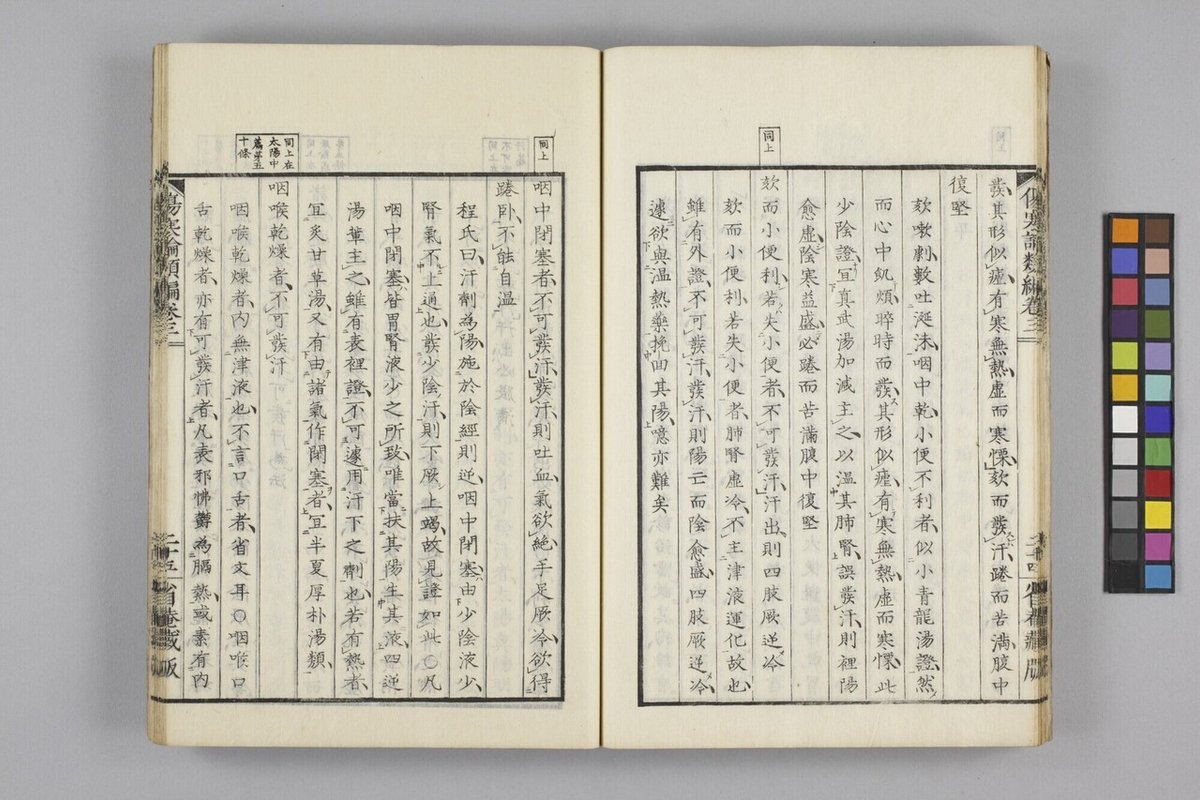 傷寒論類編卷三
二十四
省菴藏版
發其形似瘧有寒無熱虛而寒慄欬而發汗踡而苦滿腹中
復堅
欬嗽劇數吐涎沫咽中乾小便不利者似小青龍湯證然
而心中飢煩晬時而發其形似瘧有寒無熱虛而寒慄此
少陰證宜真武湯加減主之以溫其肺腎誤發汗則裡陽
愈虛陰寒益盛必踡而苦滿腹中復堅
同上
欬而小便利若失小便者不可發汗汗出則四肢厥逆冷
欬而小便利若失小便者肺腎虛冷不主津液運化故也
雖有外證不可發汗發汗則陽亡而陰愈盛四肢厥逆冷
遽欲與溫熱藥挽回其陽噫亦難矣
同上
咽中閉塞者不可發汗發汗則吐血氣欲絕手足厥冷欲得
踡臥不能自溫
程氏曰汗劑為陽施於陰經則逆咽中閉塞由少陰液少
腎氣不上通也發少陰汗則下厥上竭故見證如此○凡
咽中閉塞皆胃腎液少之所致唯當扶其陽生其液四逆
湯輩主之雖有表裡證不可遽用汗下之劑也若有熱者
宜炙甘草湯又有由諸氣作閉塞者宜半夏厚朴湯類
同上在
太陽中
篇第五
十條
咽喉乾燥者不可發汗
咽喉乾燥者內無津液也不言口舌者省文耳○咽喉口
舌乾燥者亦有可發汗者凡表邪怫鬱為膈熱或素有內
傷寒論類編卷三
二十五
省菴藏版